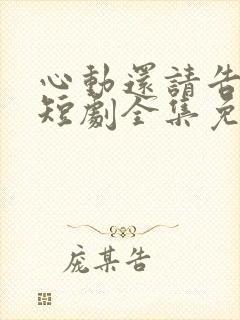 心動還請告
短劇全集免
庞某告